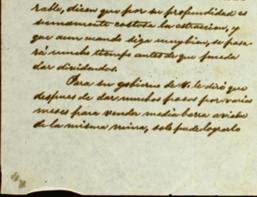 rable, dicen que por su profundidad es
sumamente costosa la estraccion, y
que aun cuando siga muy bien, se pasa
rá mucho tiempo antes de que pueda
dar dividendos.
Para su gobierno de V. le diré que
despues de dar muchos pasos por varios
meses para vender media barra aviada
de la misma mina, solo pude lograrlo